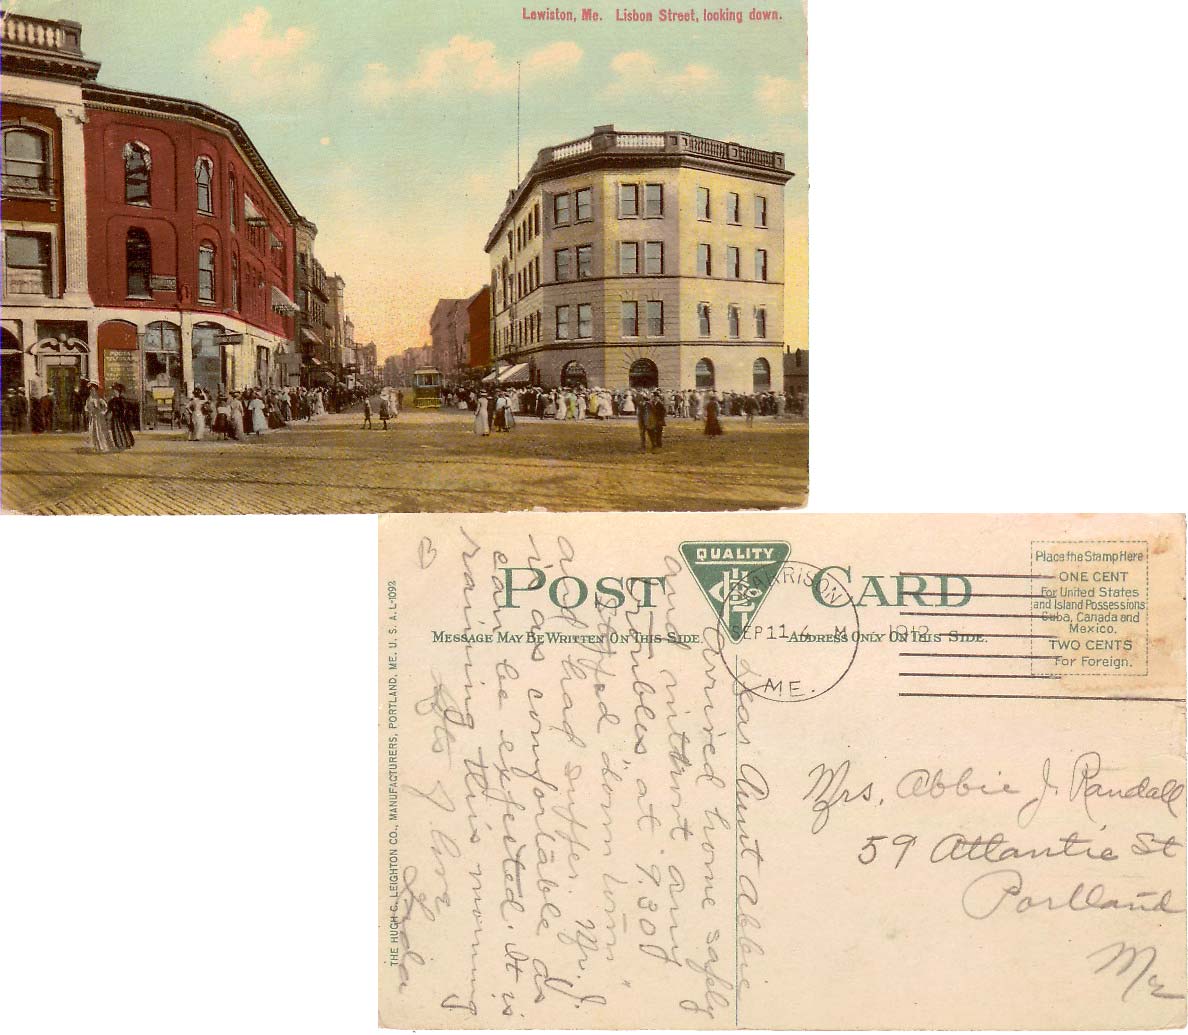 Lewiston, Me. Lisbon Street, looking down.
POSTAL TELEGRAPH
POST CARD
QUALITY
MESSAGE MAY BE WRITTEN ON THIS SIDE.
ADDRESS ONLY ON THIS SIDE.
HARRISON
SEP 11 4 M 1912
ME.
Place the Stamp Here
ONE CENT
For United States
and Island Possessions
Cuba, Canada and
Mexico.
TWO CENTS
For Foreign.
THE HUGH C. LEIGHTON CO., MANUFACTURERS, PORTLAND, ME. U. S. A. L-1092
Dear Aunt Abbie
Arrived home safely
and without any
troubles at 9.30
Stopped "down town"
and had supper. Mr. J.
is as comfortable as
can be expected. It is
raining this morning
Lots of love
Mrs. Abbie J. Randall
59 Atlantic St
Portland
Me